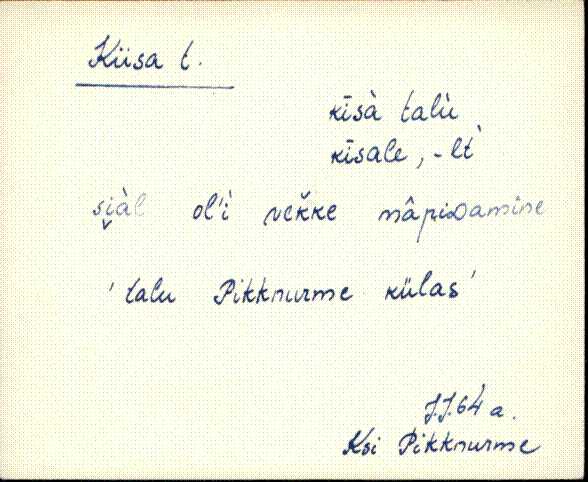 Kiisa t.
kīsà talù
kīsale, -lt̀
si̬àl ol'ì vekke nâpiDamine
'talu Pikknurme külas'
J.J. 64 a.
Ksi Pikknurme